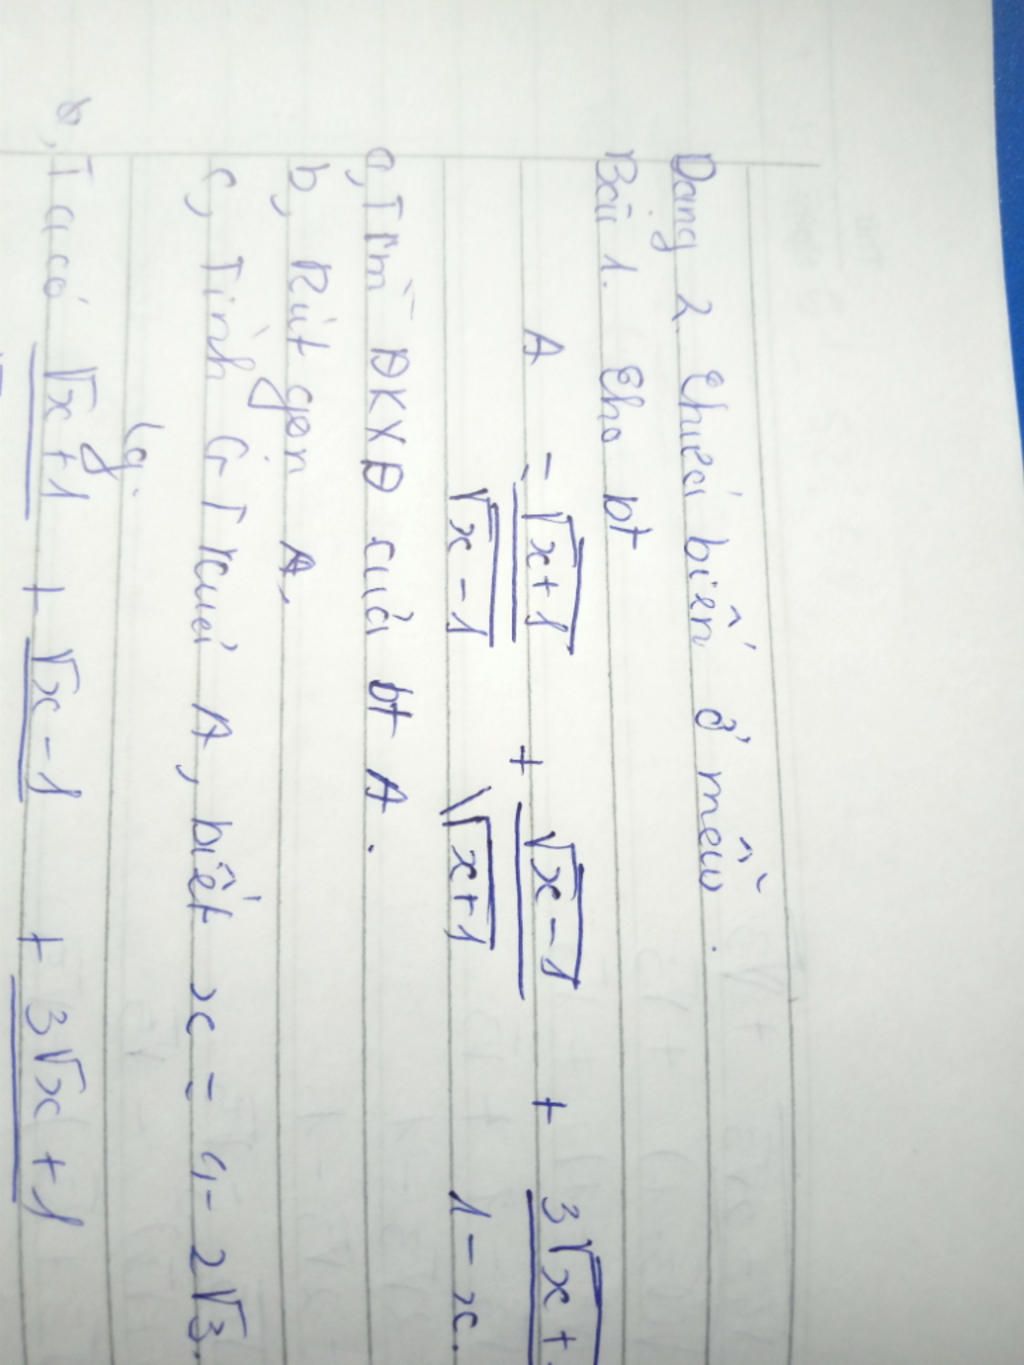 Dạng 2. Chứa biến ở mẫu.
Bài 1. Cho bt
A = √x+1 / √x-1 + √x-1 / √x+1 + 3√x+ / 1-x.
a, Tìm ĐKXĐ của bt A.
b, Rút gọn A.
c, Tính GT của A, biết x = 4-2√3.
Lg.
b, Ta có √x+1 + √x-1 + 3√x+1